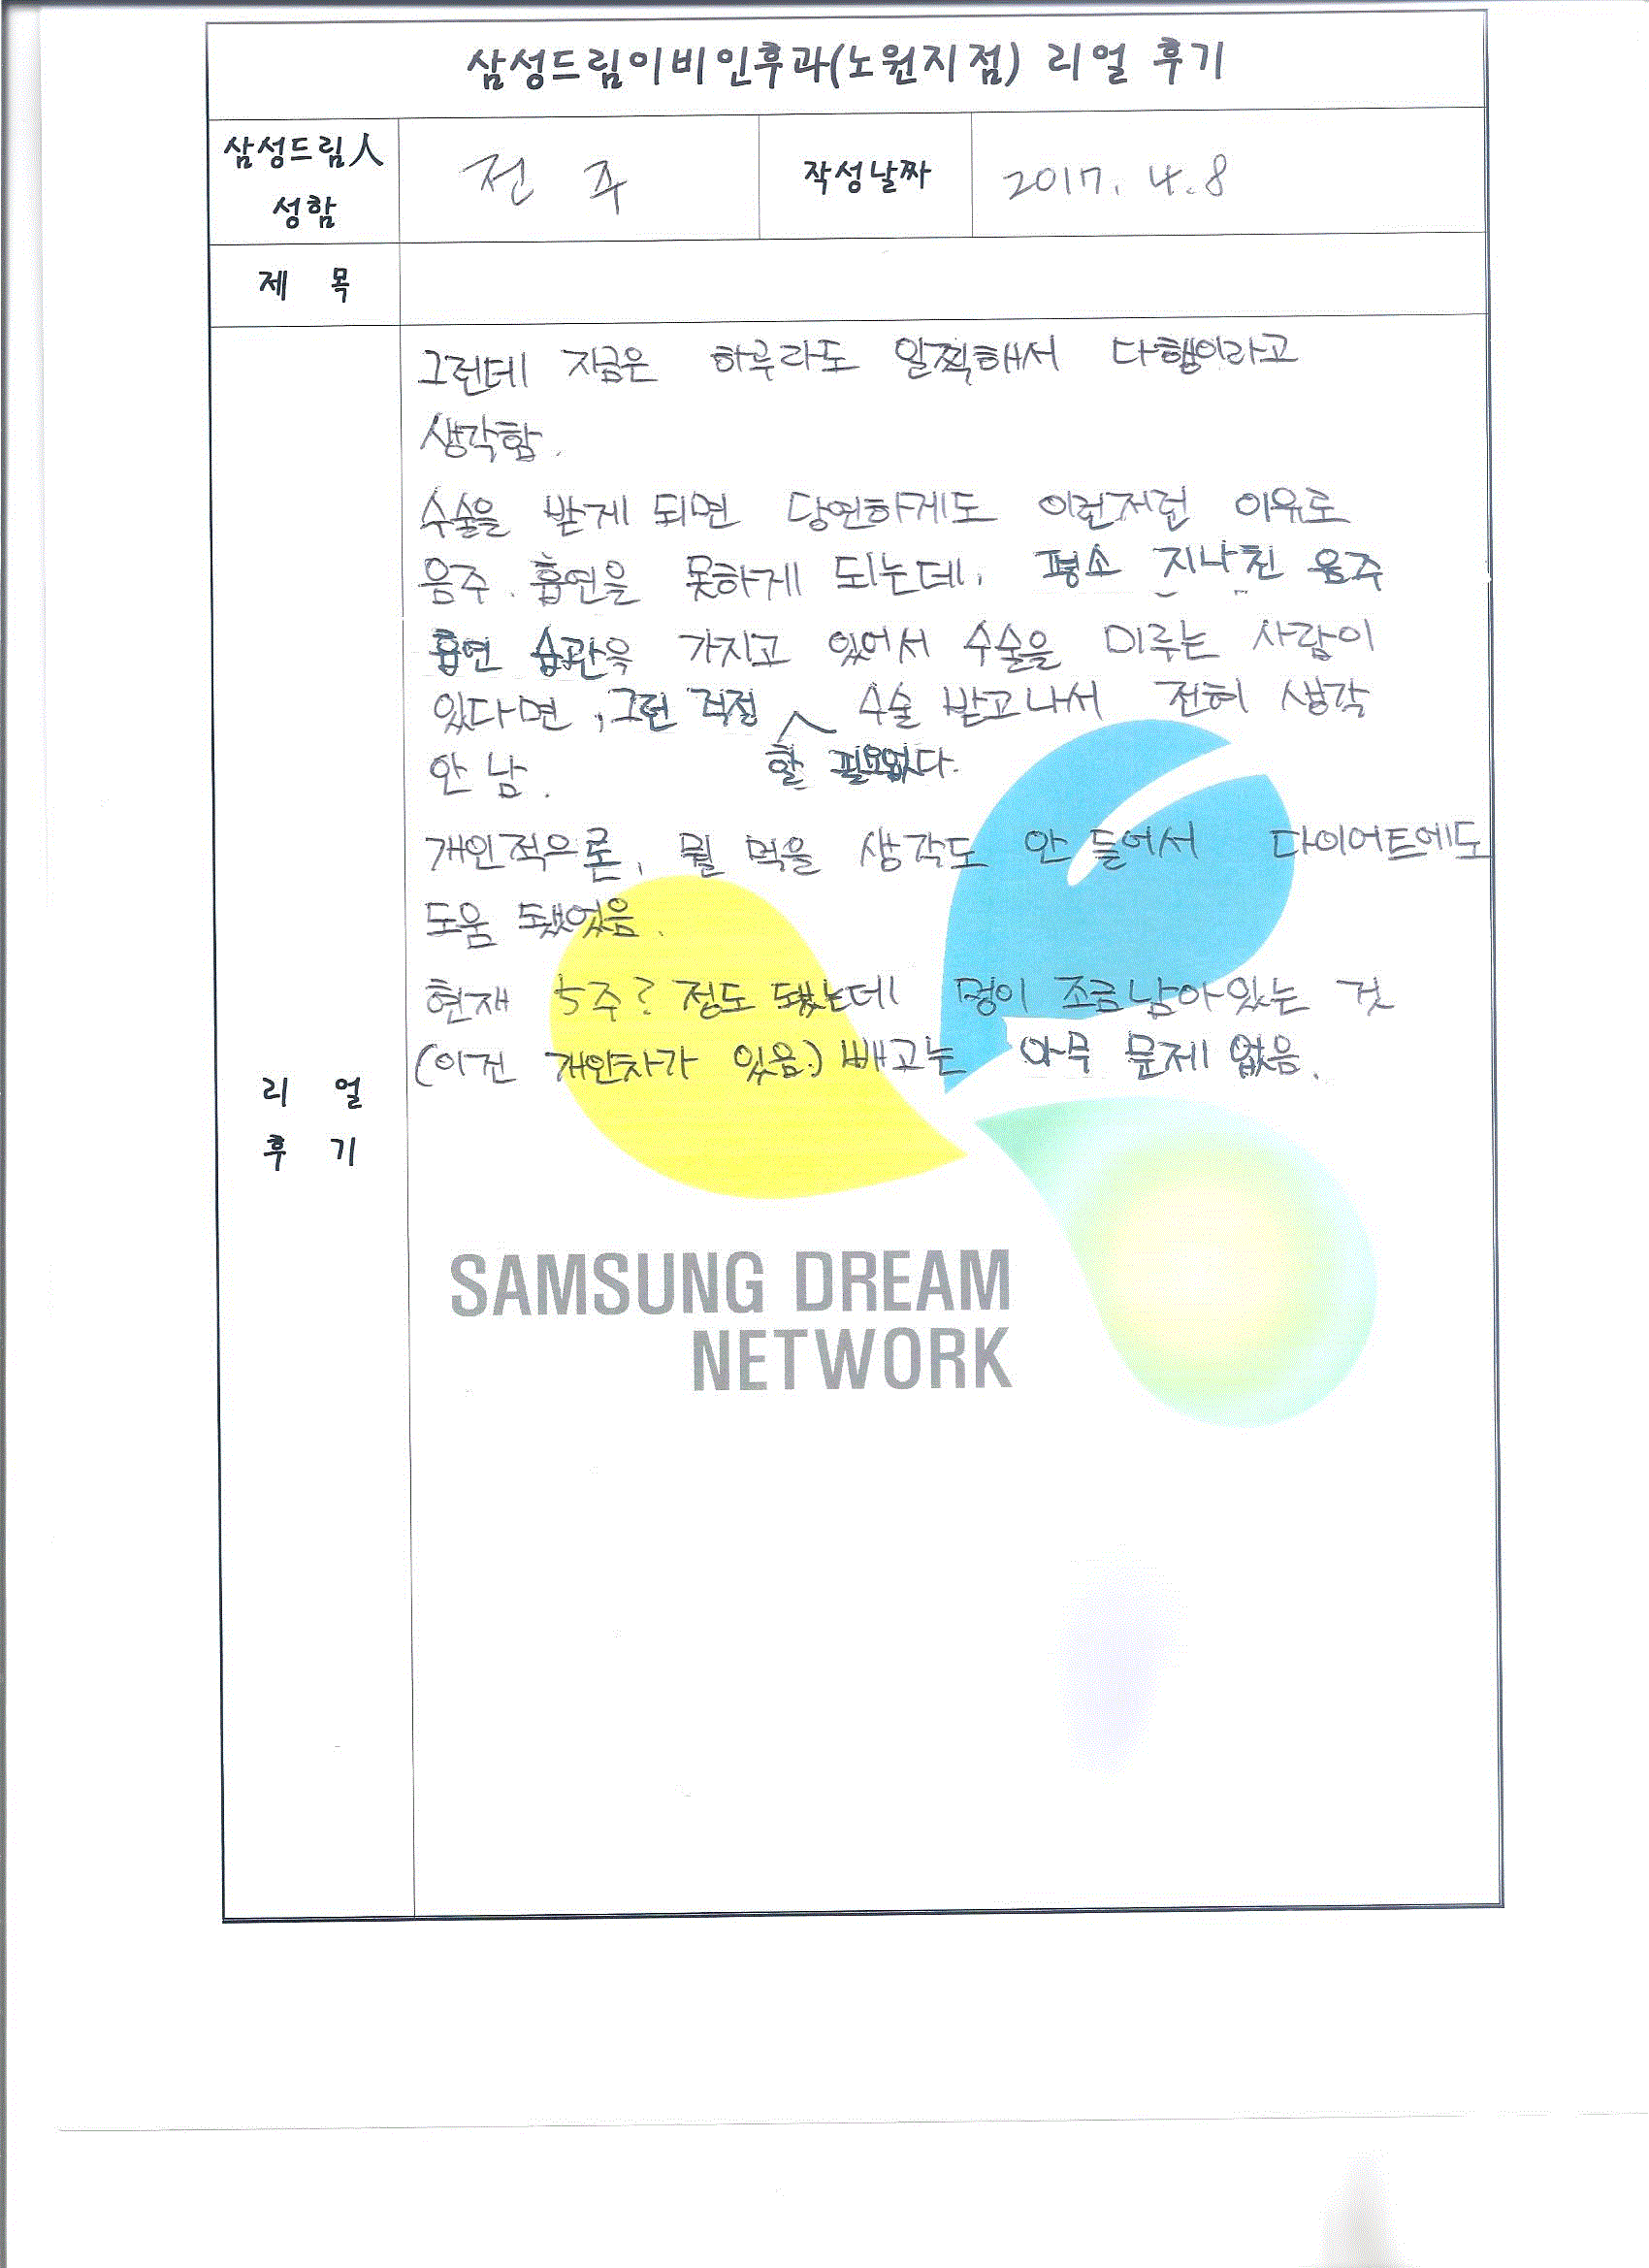 삼성드림이비인후과(노원지점) 리얼 후기
삼성드림人
성함
전 주
작성날짜
2017. 4. 8
제 목
그런데 지금은 하루라도 일찍해서 다행이라고
생각함.
수술을 받게 되면 당연하게도 이런저런 이유로
음주. 흡연을 못하게 되는데, 평소 지나친 음주
흡연 습관을 가지고 있어서 수술을 미루는 사람이
있다면, 그런 걱정 수술 받고나서 전혀 생각
할 필요없다.
안 남.
개인적으론, 뭘 먹을 생각도 안 들어서 다이어트에도
도움 됐었음.
현재 5주? 정도 됐는데 멍이 조금 남아있는 것
(이건 개인차가 있음.) 빼고는 아무 문제 없음.
리 얼
후 기
SAMSUNG DREAM
NETWORK